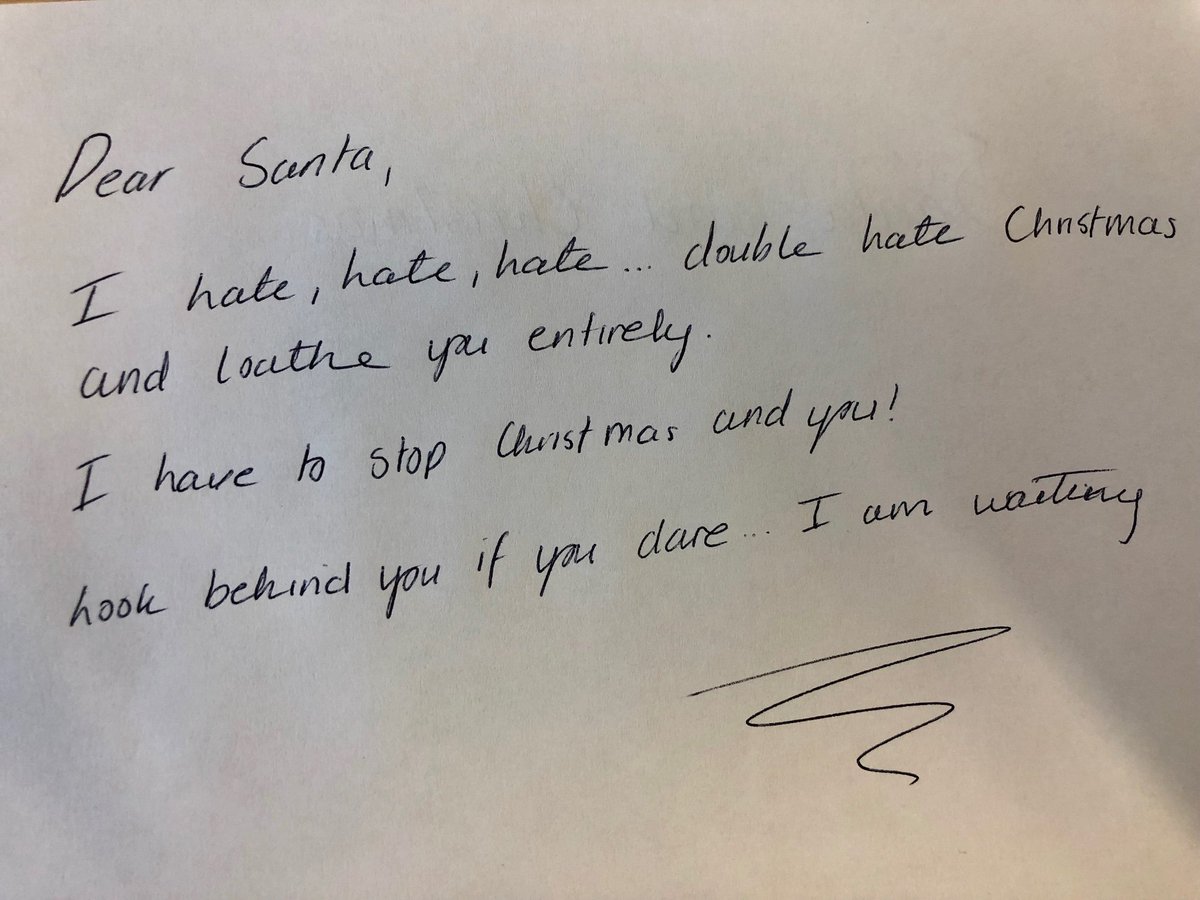 Dear Santa,
I hate, hate, hate... double hate Christmas
and loathe you entirely.
I have to stop Christmas and you!
hook behind you if you dare... I am waiting